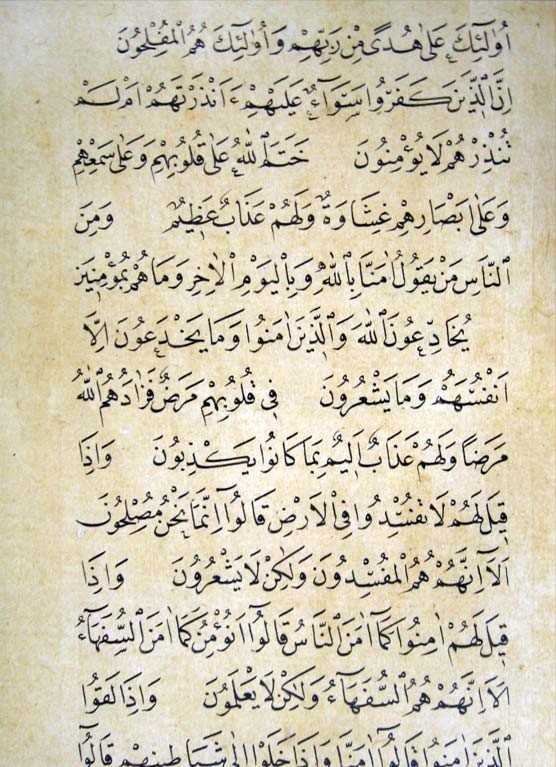 اُولٰٓئِكَ عَلٰى هُدًى مِنْ رَبِّهِمْ وَاُولٰٓئِكَ هُمُ الْمُفْلِحُونَ
اِنَّ الَّذٖينَ كَفَرُوا سَوَٓاءٌ عَلَيْهِمْ ءَاَنْذَرْتَهُمْ اَمْ لَمْ
تُنْذِرْهُمْ لَا يُؤْمِنُونَ خَتَمَ اللّٰهُ عَلٰى قُلُوبِهِمْ وَعَلٰى سَمْعِهِمْ
وَعَلٰٓى اَبْصَارِهِمْ غِشَاوَةٌ وَلَهُمْ عَذَابٌ عَظٖيمٌ وَمِنَ
النَّاسِ مَنْ يَقُولُ اٰمَنَّا بِاللّٰهِ وَبِالْيَوْمِ الْاٰخِرِ وَمَا هُمْ بِمُؤْمِنٖينَ
يُخَادِعُونَ اللّٰهَ وَالَّذٖينَ اٰمَنُوا وَمَا يَخْدَعُونَ اِلَّٓا
اَنْفُسَهُمْ وَمَا يَشْعُرُونَ فٖى قُلُوبِهِمْ مَرَضٌ فَزَادَهُمُ اللّٰهُ
مَرَضًا وَلَهُمْ عَذَابٌ اَلٖيمٌ بِمَا كَانُوا يَكْذِبُونَ وَاِذَا
قٖيلَ لَهُمْ لَا تُفْسِدُوا فِى الْاَرْضِ قَالُٓوا اِنَّمَا نَحْنُ مُصْلِحُونَ
اَلَٓا اِنَّهُمْ هُمُ الْمُفْسِدُونَ وَلٰكِنْ لَا يَشْعُرُونَ وَاِذَا
قٖيلَ لَهُمْ اٰمِنُوا كَمَٓا اٰمَنَ النَّاسُ قَالُٓوا اَنُؤْمِنُ كَمَٓا اٰمَنَ السُّفَهَٓاءُ
اَلَٓا اِنَّهُمْ هُمُ السُّفَهَٓاءُ وَلٰكِنْ لَا يَعْلَمُونَ وَاِذَا لَقُوا
الَّذٖينَ اٰمَنُوا قَالُٓوا اٰمَنَّا وَاِذَا خَلَوْا اِلٰى شَيَاطٖينِهِمْ قَالُٓوا